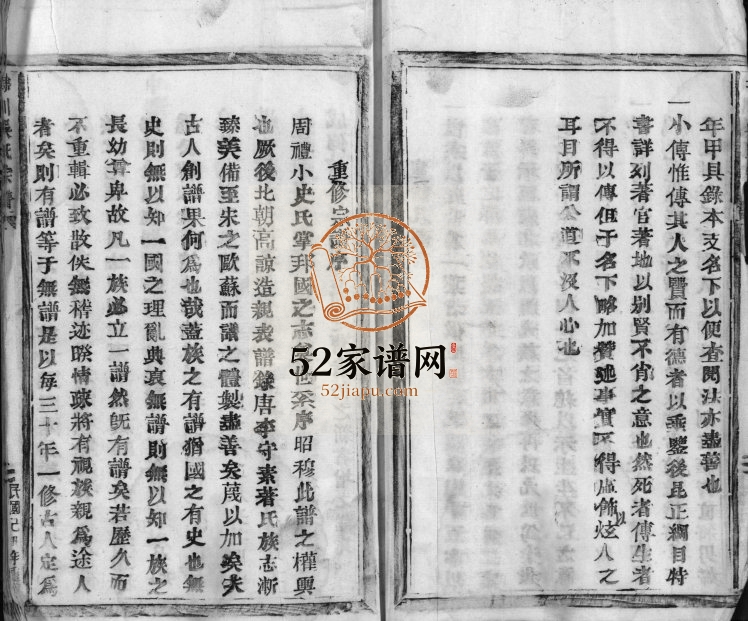 年甲具錄本支名下以便查閱法亦盡善也
一小傳惟傳其人之賢而有德者以垂鑒後昆正綱目特
書詳列著官著地以別賢不肖之意也然死者傳生者
不得以傳但于名下略加贊述事實不得虛飾以炫人之
耳目所謂公道不沒人心也
重修宗譜序
周禮小史氏掌邦國之志世系序昭穆此譜之權輿
也厥後北朝高諒造親表譜錄唐李守素著氏族志漸
臻美備至宋之歐蘇而譜之體製盡善矣蔑以加矣夫
古人創譜果何為也哉蓋族之有譜猶國之有史也無
史則無以知一國之理亂興衰無譜則無以知一族之
長幼尊卑故凡一族必立一譜然既有譜矣若歷久而
不重輯必致散佚無稽迹暌情疎將有視族親為途人
者矣則有譜等于無譜是以每三十年一修古人定為
川吳氏宗譜
民國己年
52家谱网
52jiapu.com